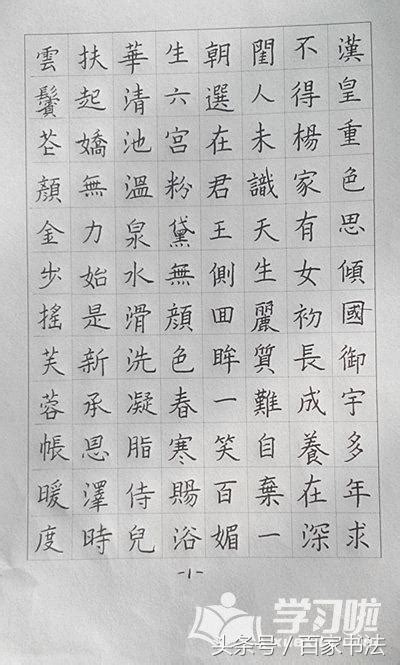 漢皇重色思傾國御宇多年求
不得楊家有女初長成養在深
閨人未識天生麗質難自棄一
朝選在君王側回眸一笑百媚
生六宮粉黛無顔色春寒賜浴
華清池溫泉水滑洗凝脂侍兒
扶起嬌無力始是新承恩澤時
雲鬢花顏金步搖芙蓉帳暖度
-1-
学习啦
头条号/百家书法